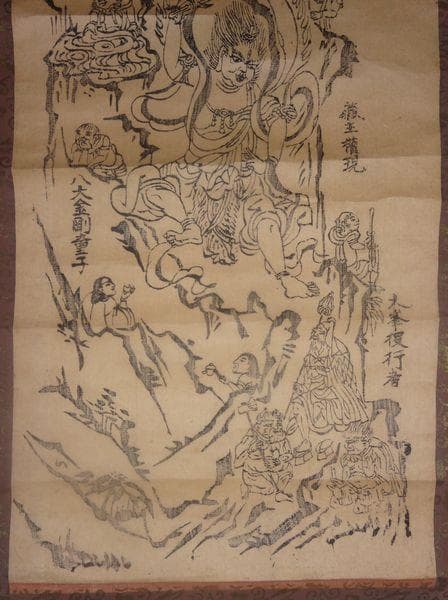 藏王權現
大峯役行者
八大金剛童子